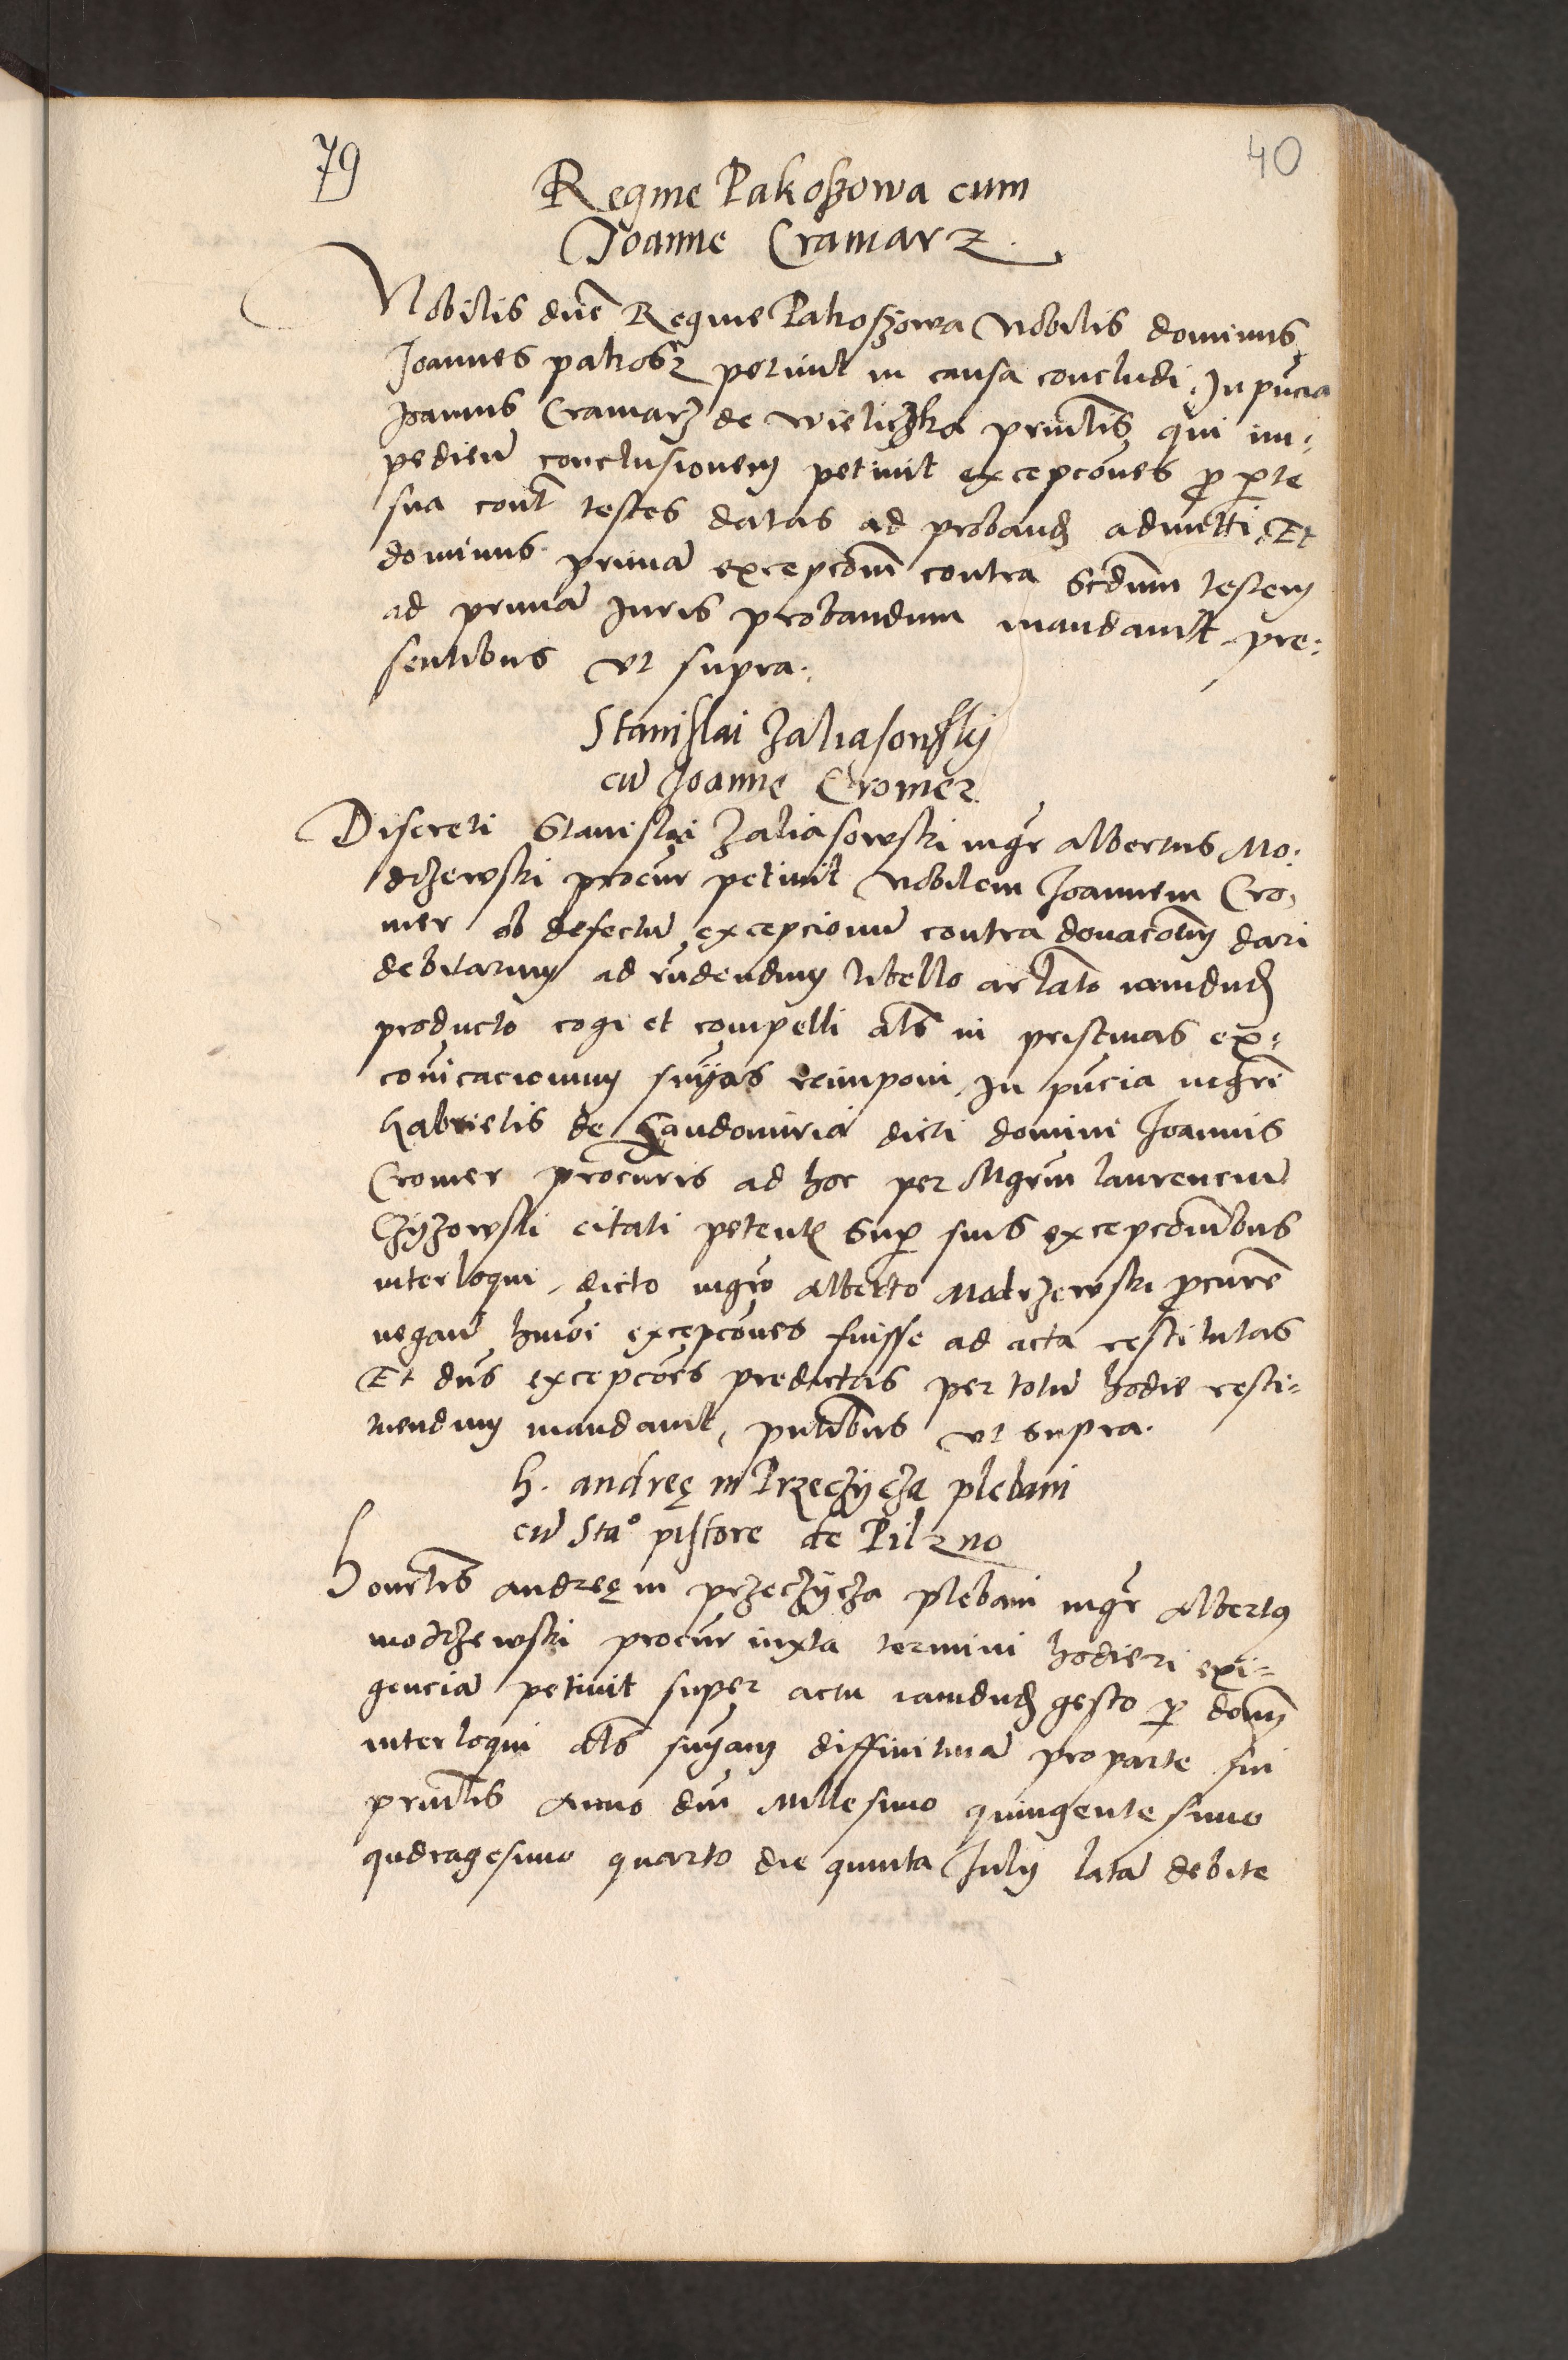 79
40
Regine Pakoszowa cum
Joanne Cramarz.
Nobilis dne Regine Pakoszowa Nobilis dominus
Joannes pakosz petivit in causa concludi, In pncia
Joannis Cramarz de Wieliczka principalis qui im-
pedien conclusionem petivit excepcones pro parte
sua contra testes datas ad proband admitti, Et
dominus primam excepconem contra scdum testem
ad primam Juris probandum mandavit pre-
sentibus vt supra.
Stanislai Zaliasowskij
cum Joanne Cromer
Discreti Stanislai Zaliasowski mgr Albertus Mo-
drzewski procur petivit Nobilem Joannem Cro-
mer ob defectu excepcionum contra donaconem dari
debitarum ad rndendum libello articulato iamdud
producto cogi et compelli als in pristinas ex-
coicacionum snias reimponi, In pncia mgri
Gabrielis de Sandomiria dicti domini Joannis
Cromer procuris ad hoc per Mgrum laurencium
Czyzowski citati petent sup suis excepconibus
interloqui, dicto mgro Alberto Modrzewski procure
negan hmoi excepcones fuisse ad acta restitutas
Et dns excepcoes predictas per totum hodie resti-
tuendum mandavit, pntibus vt supra.
h. andreę in Przeczycza plebani
cum Sta° pistore de Pilzno
Honblis andreę in przeczycza plebani mgr Albertus
modrzewski procur iuxta termini hodierni exi-
genciam petivit super actu iamdud gesto per donum
interloqui als sniam diffinitivam pro parte sui
principalis Anno dni Millesimo quingentesimo
qudragesimo quarto die quinta July latam debite